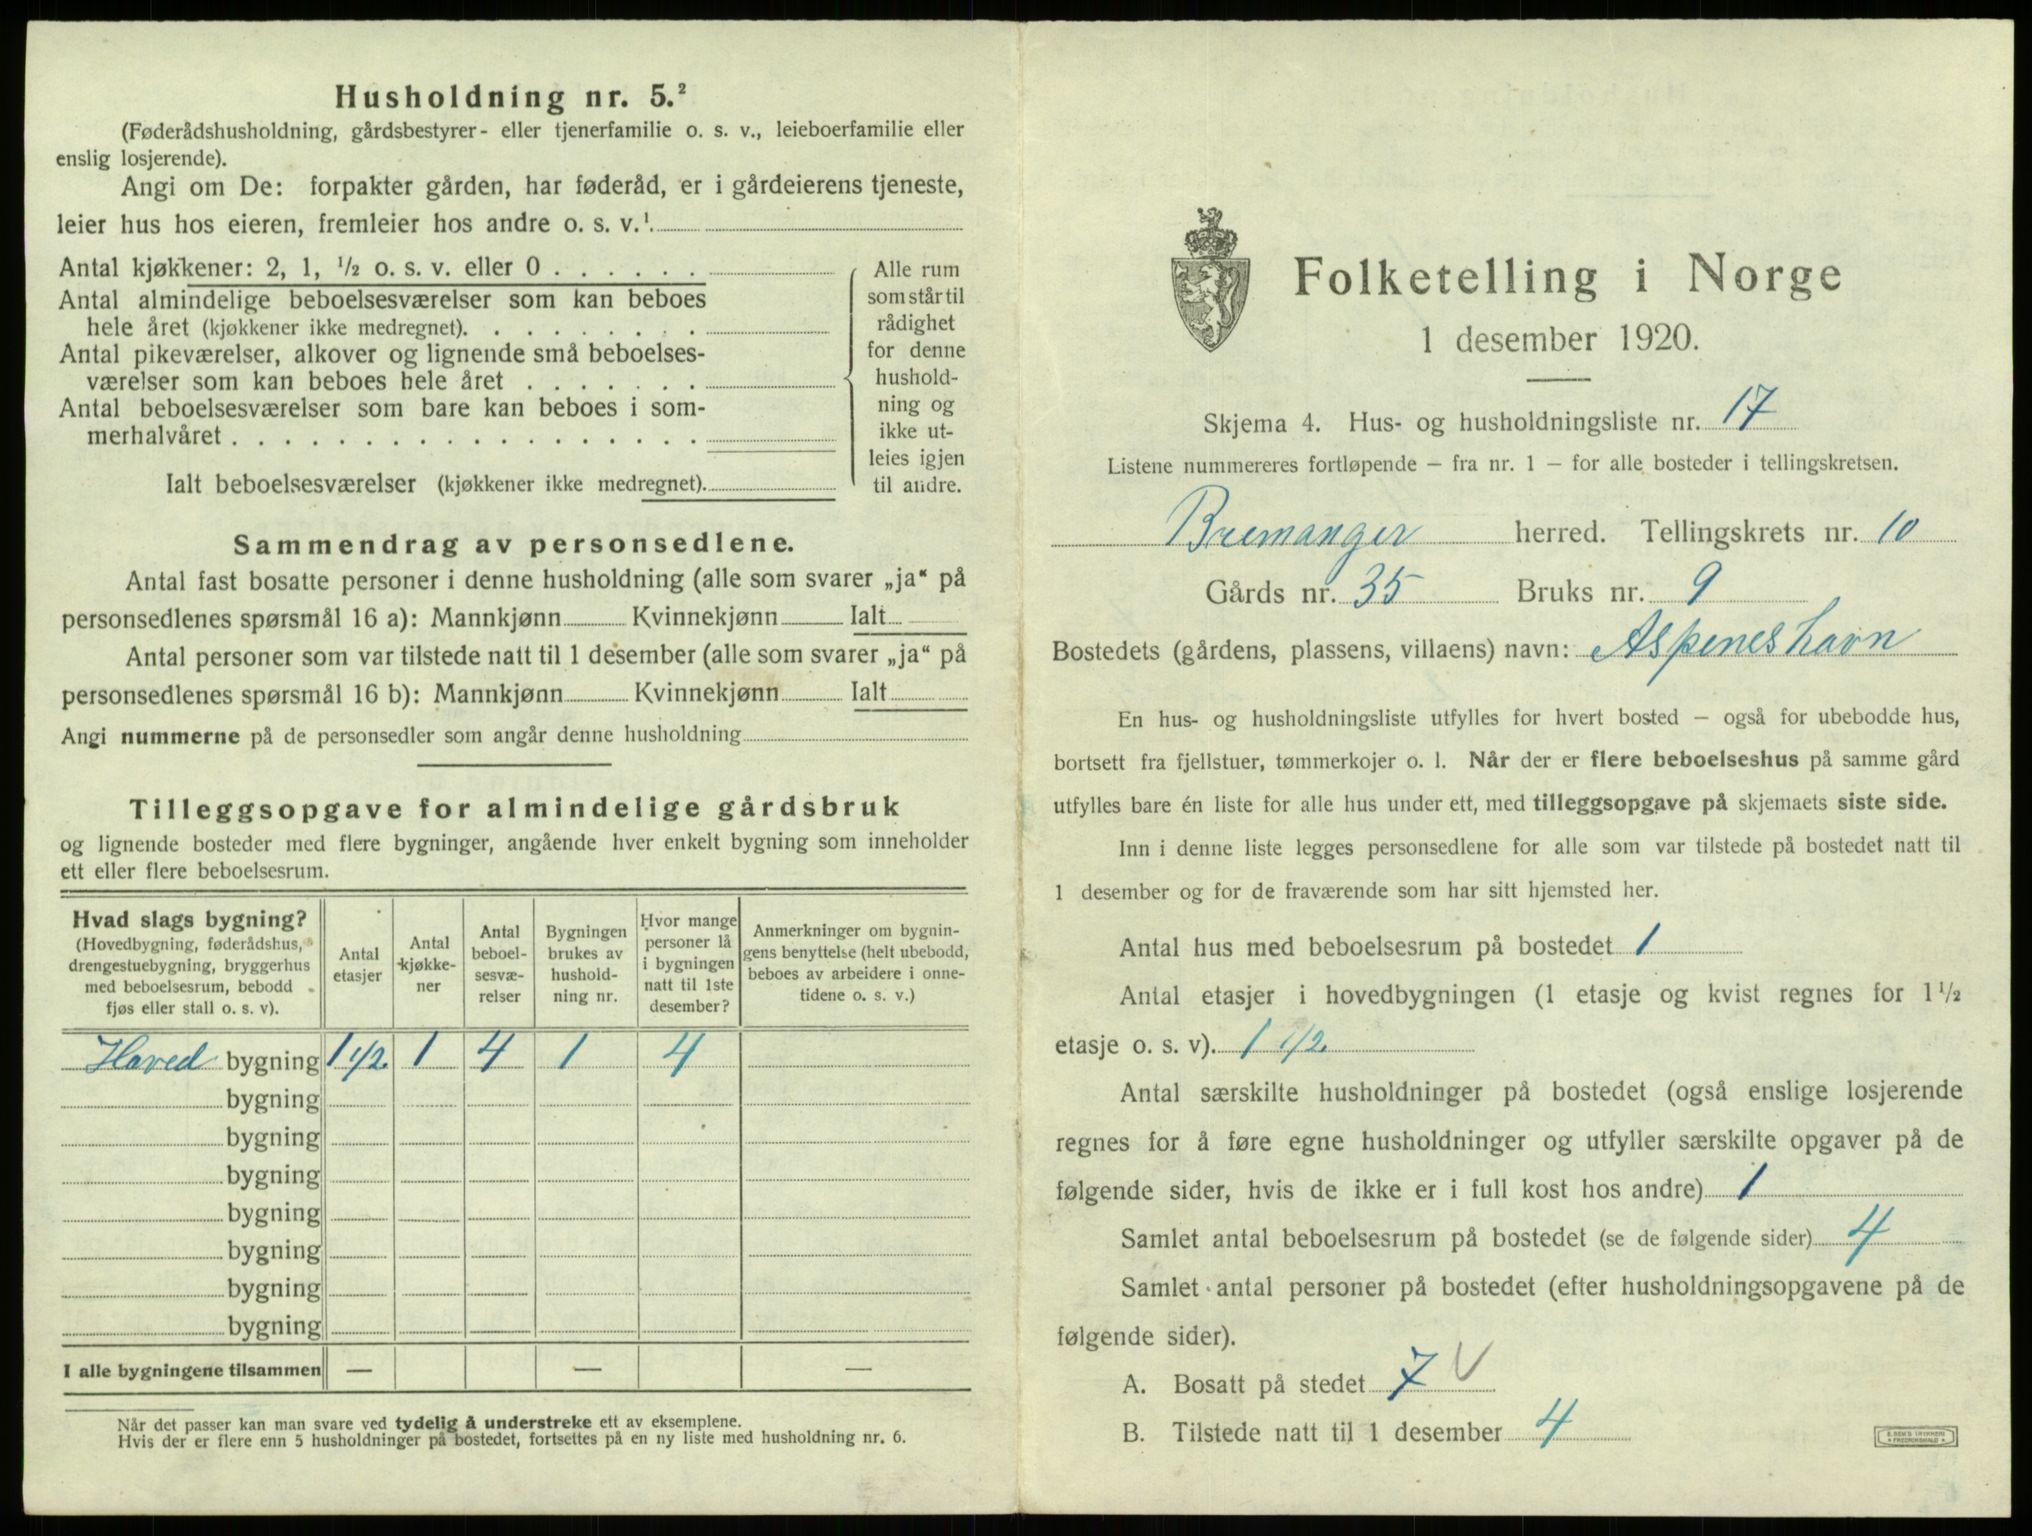 Husholdning nr. 5.²
(Føderådshusholdning, gårdsbestyrer- eller tjenerfamilie o. s. v., leieboerfamilie eller
enslig losjerende).
Angi om De: forpakter gården, har føderåd, er i gårdeierens tjeneste,
leier hus hos eieren, fremleier hos andre o. s. v.¹
Antal kjøkkener: 2, 1, ½ o. s. v. eller 0 . . . . . .
Antal almindelige beboelsesværelser som kan beboes
hele året (kjøkkener ikke medregnet). . . . . . . . .
Antal pikeværelser, alkover og lignende små beboelses-
værelser som kan beboes hele året . . . . . . .
Antal beboelsesværelser som bare kan beboes i som-
merhalvåret . . . . . . . . . . . . . . . . . .
Ialt beboelsesværelser (kjøkkener ikke medregnet).
Alle rum
som står til
rådighet
for denne
hushold-
ning og
ikke ut-
leies igjen
til andre.
Sammendrag av personsedlene.
Antal fast bosatte personer i denne husholdning (alle som svarer „ja“ på
personsedlenes spørsmål 16 a): Mannkjønn Kvinnekjønn Ialt
Antal personer som var tilstede natt til 1 desember (alle som svarer „ja“ på
personsedlenes spørsmål 16 b): Mannkjønn Kvinnekjønn Ialt
Angi nummerne på de personsedler som angår denne husholdning
Tilleggsopgave for almindelige gårdsbruk
og lignende bosteder med flere bygninger, angående hver enkelt bygning som inneholder
ett eller flere beboelsesrum.
Hvad slags bygning?
(Hovedbygning, føderådshus,
drengestuebygning, bryggerhus
med beboelsesrum, bebodd
fjøs eller stall o. s. v).
Antal
etasjer
Antal
kjøkke-
ner
Antal
beboel-
sesvæ-
relser
Bygningen
brukes av
hushold-
ning nr.
Hvor mange
personer lå
i bygningen
natt til 1ste
desember?
Anmerkninger om bygnin-
gens benyttelse (helt ubebodd,
beboes av arbeidere i onne-
tidene o. s. v.)
Hoved bygning 1 1/2. 1 4 1 4
bygning
bygning
bygning
bygning
bygning
bygning
bygning
I alle bygningene tilsammen — — —
Når det passer kan man svare ved tydelig å understreke ett av eksemplene.
Hvis der er flere enn 5 husholdninger på bostedet, fortsettes på en ny liste med husholdning nr. 6.
Folketelling i Norge
1 desember 1920.
Skjema 4. Hus- og husholdningsliste nr. 17
Listene nummereres fortløpende — fra nr. 1 — for alle bosteder i tellingskretsen.
Bremanger herred. Tellingskrets nr. 10
Gårds nr. 35 Bruks nr. 9
Bostedets (gårdens, plassens, villaens) navn: Aspeneshavn
En hus- og husholdningsliste utfylles for hvert bosted — også for ubebodde hus,
bortsett fra fjellstuer, tømmerkojer o. l. Når der er flere beboelseshus på samme gård
utfylles bare én liste for alle hus under ett, med tilleggsopgave på skjemaets siste side.
Inn i denne liste legges personsedlene for alle som var tilstede på bostedet natt til
1 desember og for de fraværende som har sitt hjemsted her.
Antal hus med beboelsesrum på bostedet 1
Antal etasjer i hovedbygningen (1 etasje og kvist regnes for 1½
etasje o. s. v). 1 1/2.
Antal særskilte husholdninger på bostedet (også enslige losjerende
regnes for å føre egne husholdninger og utfyller særskilte opgaver på de
følgende sider, hvis de ikke er i full kost hos andre) 1
Samlet antal beboelsesrum på bostedet (se de følgende sider) 4
Samlet antal personer på bostedet (efter husholdningsopgavene på de
følgende sider).
A. Bosatt på stedet 7 V
B. Tilstede natt til 1 desember 4
E. SEM'S TRYKKERI
FREDRIKSHALD